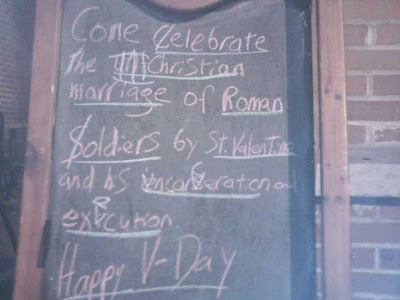 Come Celebrate
The Christian
marriage of Roman
Soldiers by St. Valentine
and his
execution
Happy V-Day